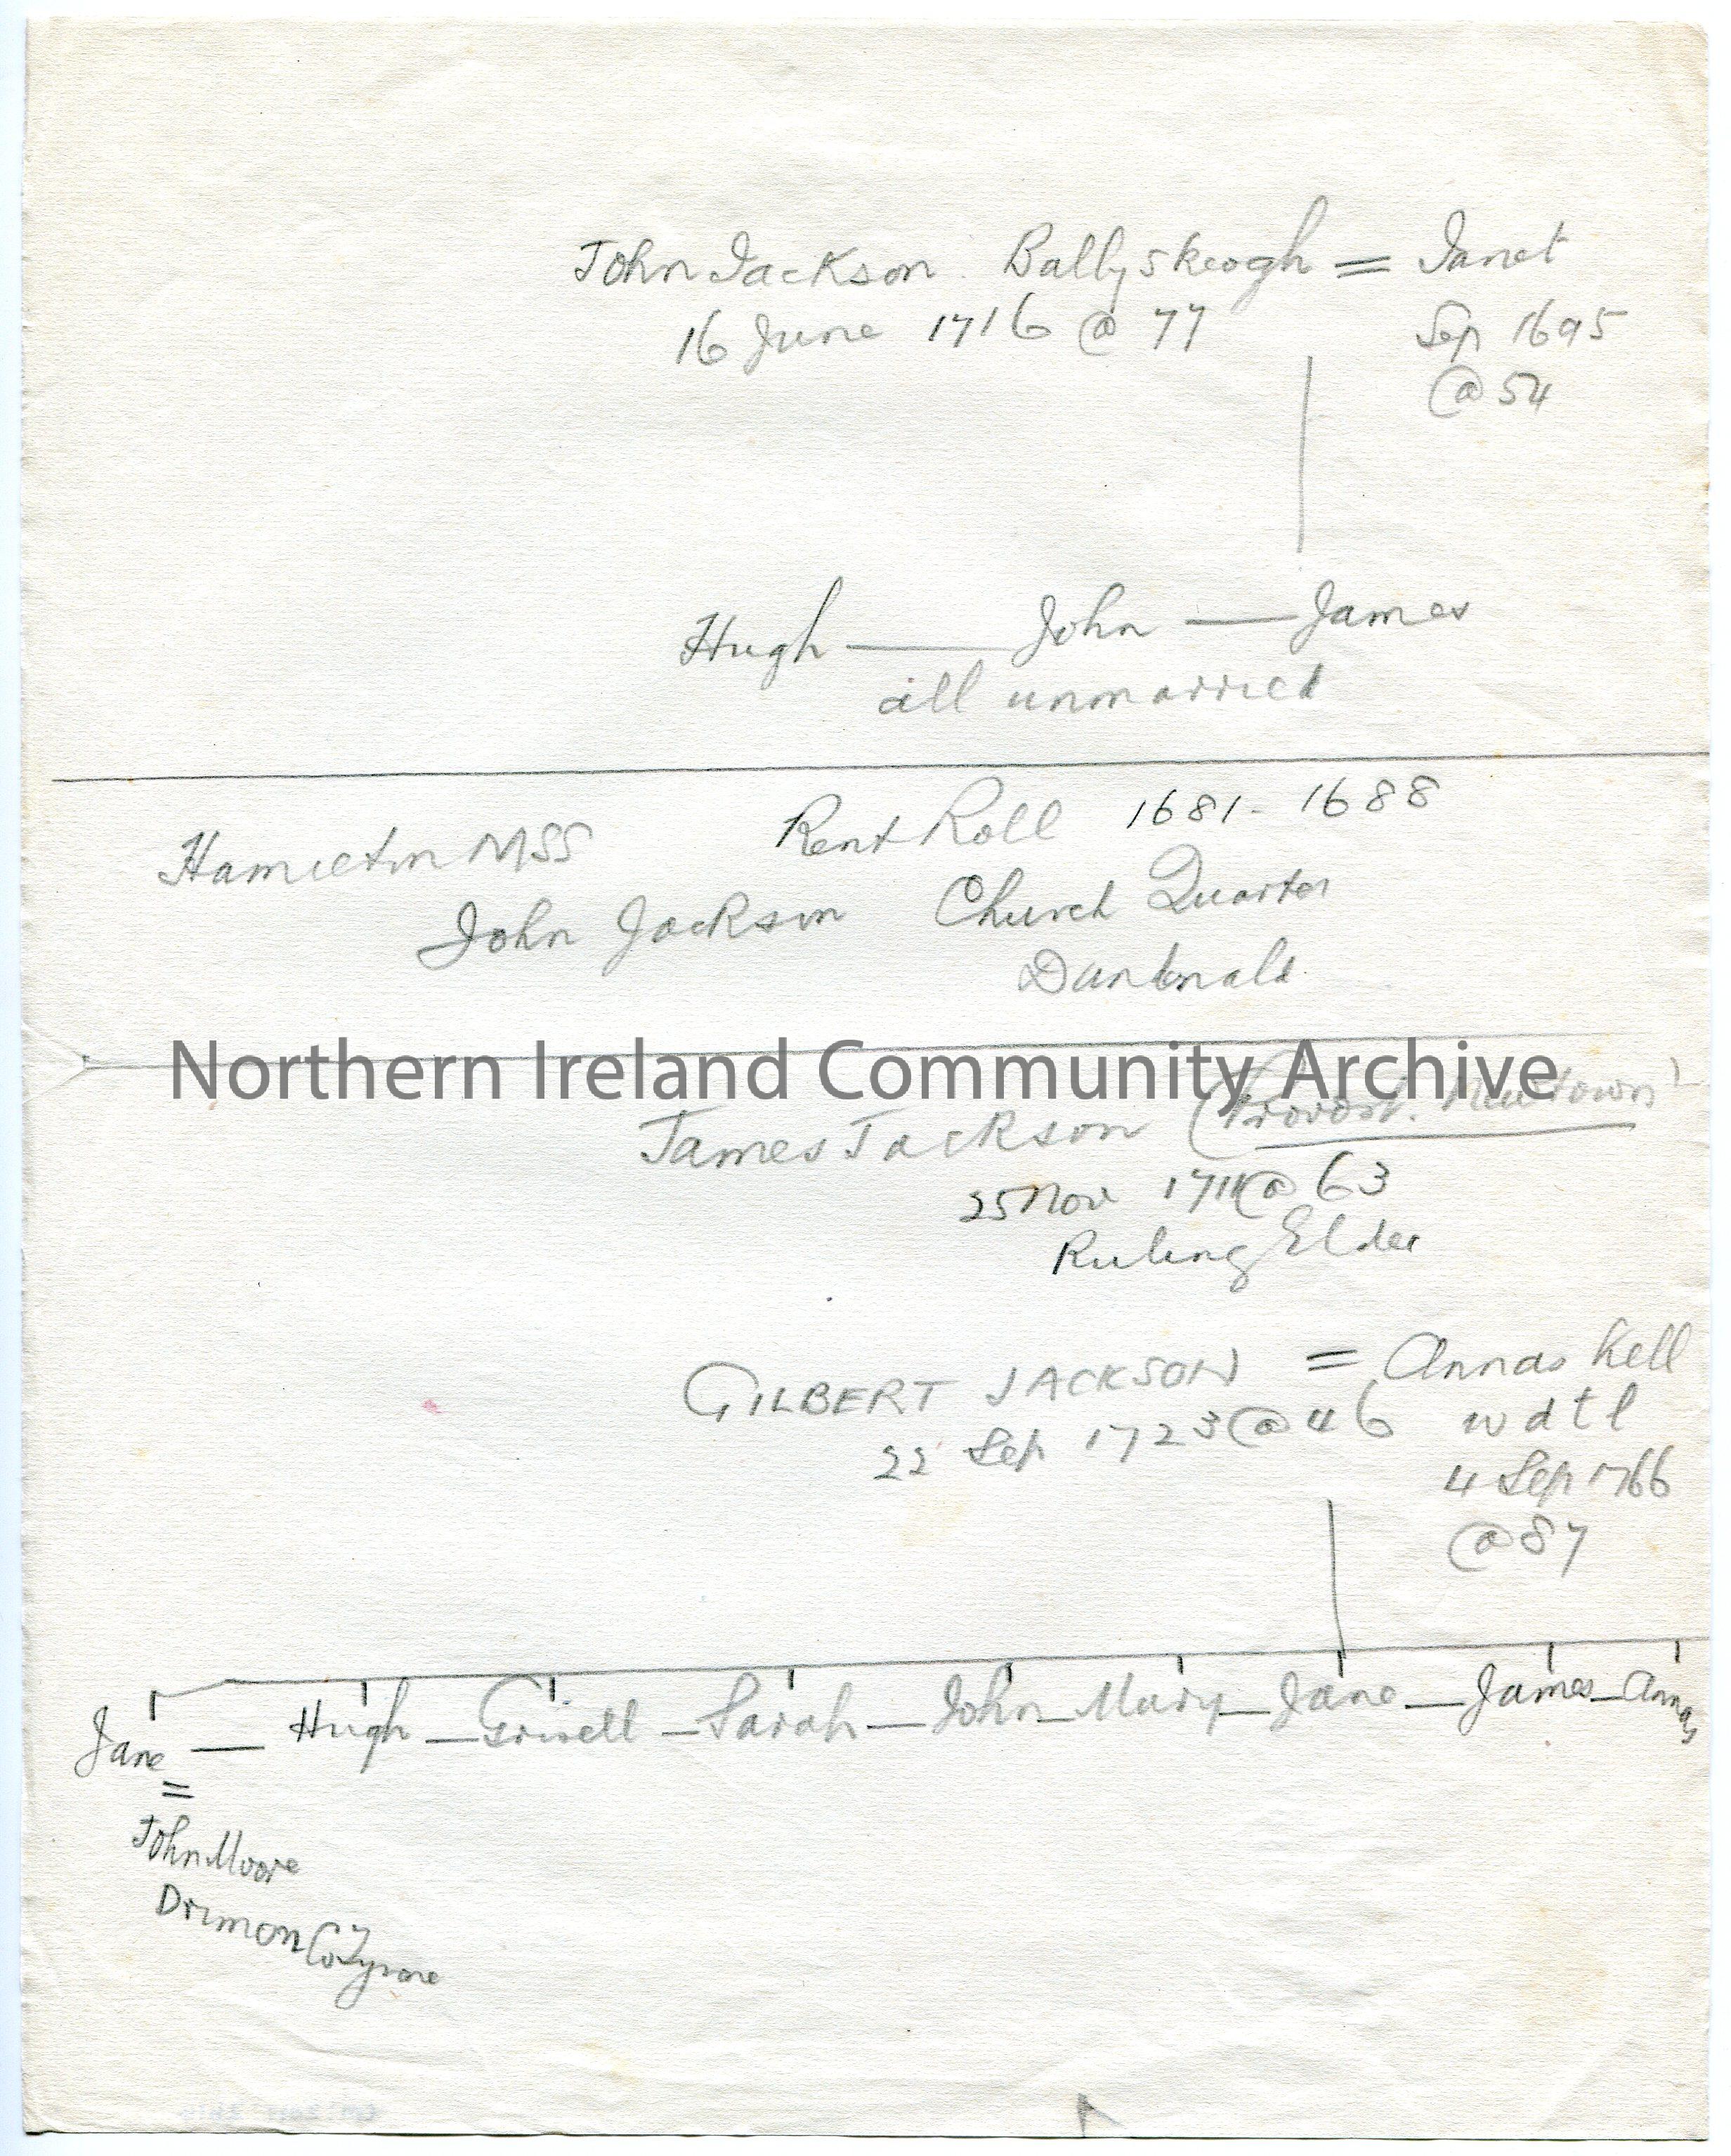 John Jackson. Ballyskeogh = Janet
16 June 1716 @ 77 Sep 1695
@ 54
Hugh — John — James
all unmarried
Hamilton MSS Rent Roll 1681-1688
John Jackson Church Quarter
Dundonald.
Northern Ireland Community Archive
James Jackson (Provost. Newtown)
25 Nov 1711 @ 63
Ruling Elder
GILBERT JACKSON = Annas Kell
22 Sep 1723 @ 46 wdtl
4 Sep 1766
@ 87
Jane — Hugh — Grisell — Sarah — John — Mary — Jane — James — Annas
=
John Moore
Drumon Co Tyrone